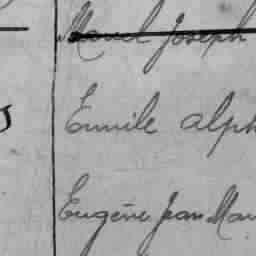 Maud Joseph
Emile alph
Eugène Jean Mau